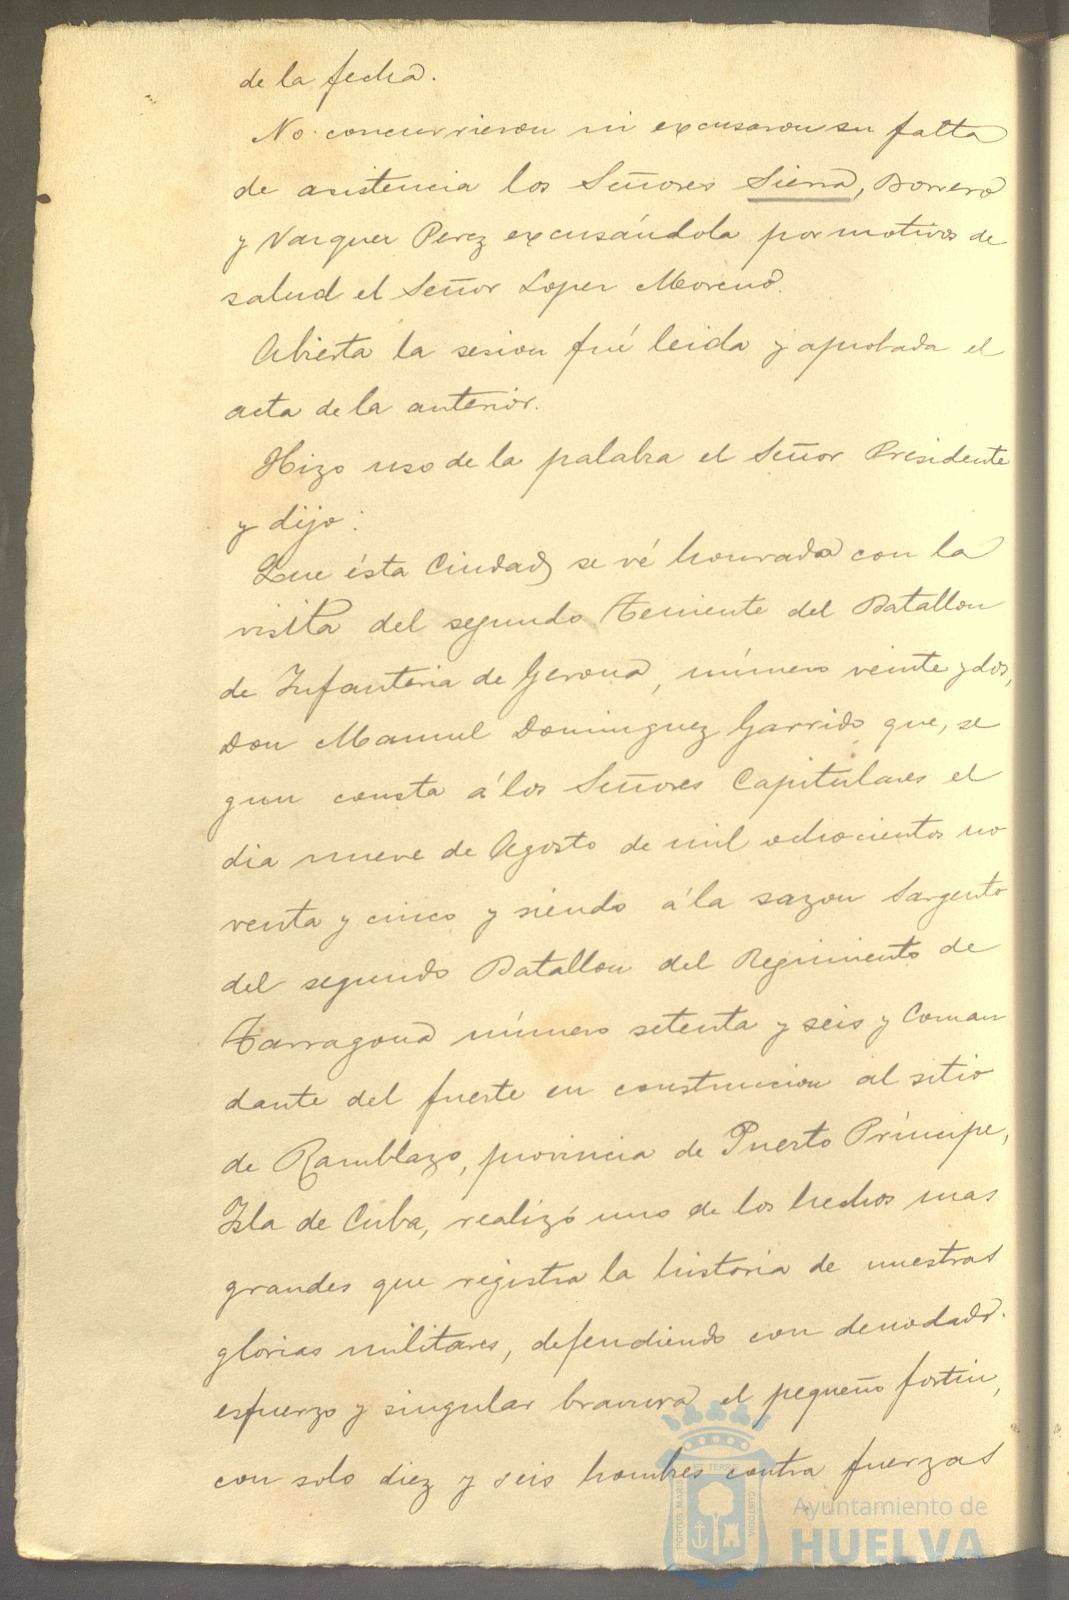 de la fecha.
No concurrieron ni excusaron su falta
de asistencia los Señores Sierra, Borrero
y Vazquez Perez excusándola por motivos de
salud el Señor Lopez Moreno.
Abierta la sesion fué leida y aprobada el
acta de la anterior.
Hizo uso de la palabra el Señor Presidente
y dijo:
Que ésta Ciudad se vé honrada con la
visita del segundo Teniente del Batallon
de Infanteria de Gerona, número veinte y dos,
Don Manuel Dominguez Garrido que, se
gun consta á los Señores Capitulares el
dia nueve de Agosto de mil ochocientos no
venta y cinco y siendo á la sazon Sargento
del segundo Batallon del Regimiento de
Tarragona número setenta y seis y Coman
dante del fuerte en construccion al sitio
de Ramblazo, provincia de Puerto Príncipe,
Isla de Cuba, realizó uno de los hechos mas
grandes que registra la historia de nuestras
glorias militares, defendiendo con denodado
esfuerzo y singular bravura el pequeño fortin,
con solo diez y seis hombres contra fuerzas
PORTUS MARIS ET TERRE CUSTODIA
Ayuntamiento de
HUELVA